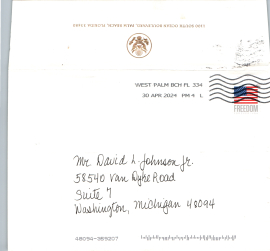 1100 SOUTH OCEAN BOULEVARD, PALM BEACH, FLORIDA 33480
WEST PALM BCH FL 334
30 APR 2024 PM 4 L
FREEDOM
Mr. David L. Johnson Jr.
58540 Van Dyke Road
Suite 7
Washington, Michigan 48094
48094-385207